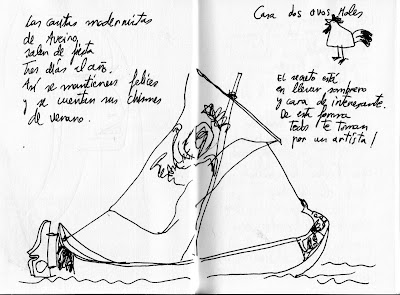 Las casitas modernistas
de Aveiro,
salen de fiesta
Tres días al año.
Así se mantienen felices
y se cuentan sus chismes
de verano.
Casa dos ovos Moles
El secreto está
en llevar sombrero
y cara de interesante.
De esta forma
Todos te toman
por un artista!